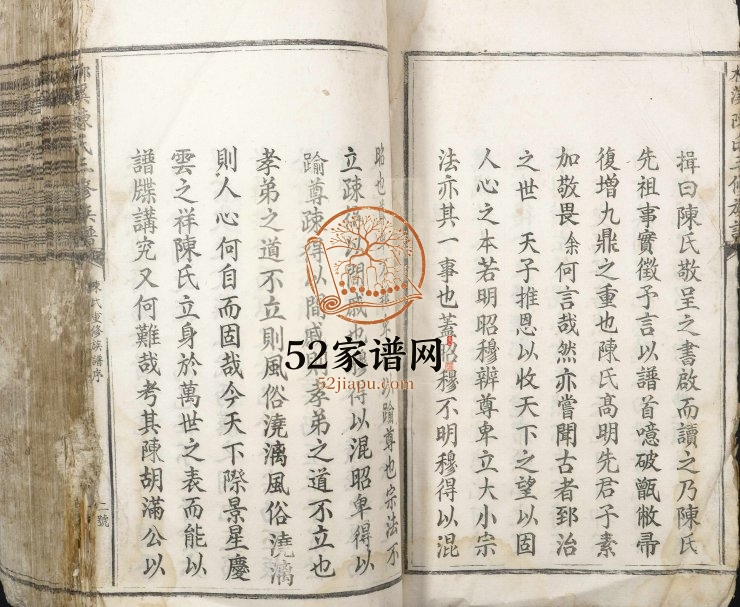 揖曰陳氏敬呈之書啟而讀之乃陳氏
先祖事實徵予言以譜首噫破甑敝帚
復增九鼎之重也陳氏高明先君子素
加敬畏余何言哉然亦嘗聞古者郅治
之世　天子推恩以收天下之望以固
人心之本若明昭穆辨尊卑立大小宗
法亦其一事也蓋昭穆不明穆得以混
昭也 踰尊也宗法不
立疎得以間戚也 得以混昭卑得以
踰尊疎得以間戚 孝弟之道不立也
孝弟之道不立則風俗澆漓風俗澆漓
則人心何自而固哉今天下際景星慶
雲之祥陳氏立身於萬世之表而能以
譜牒講究又何難哉考其陳胡滿公以
陳氏重修族譜序
二號
陳氏三修族譜
52家谱网
52jiapu.com